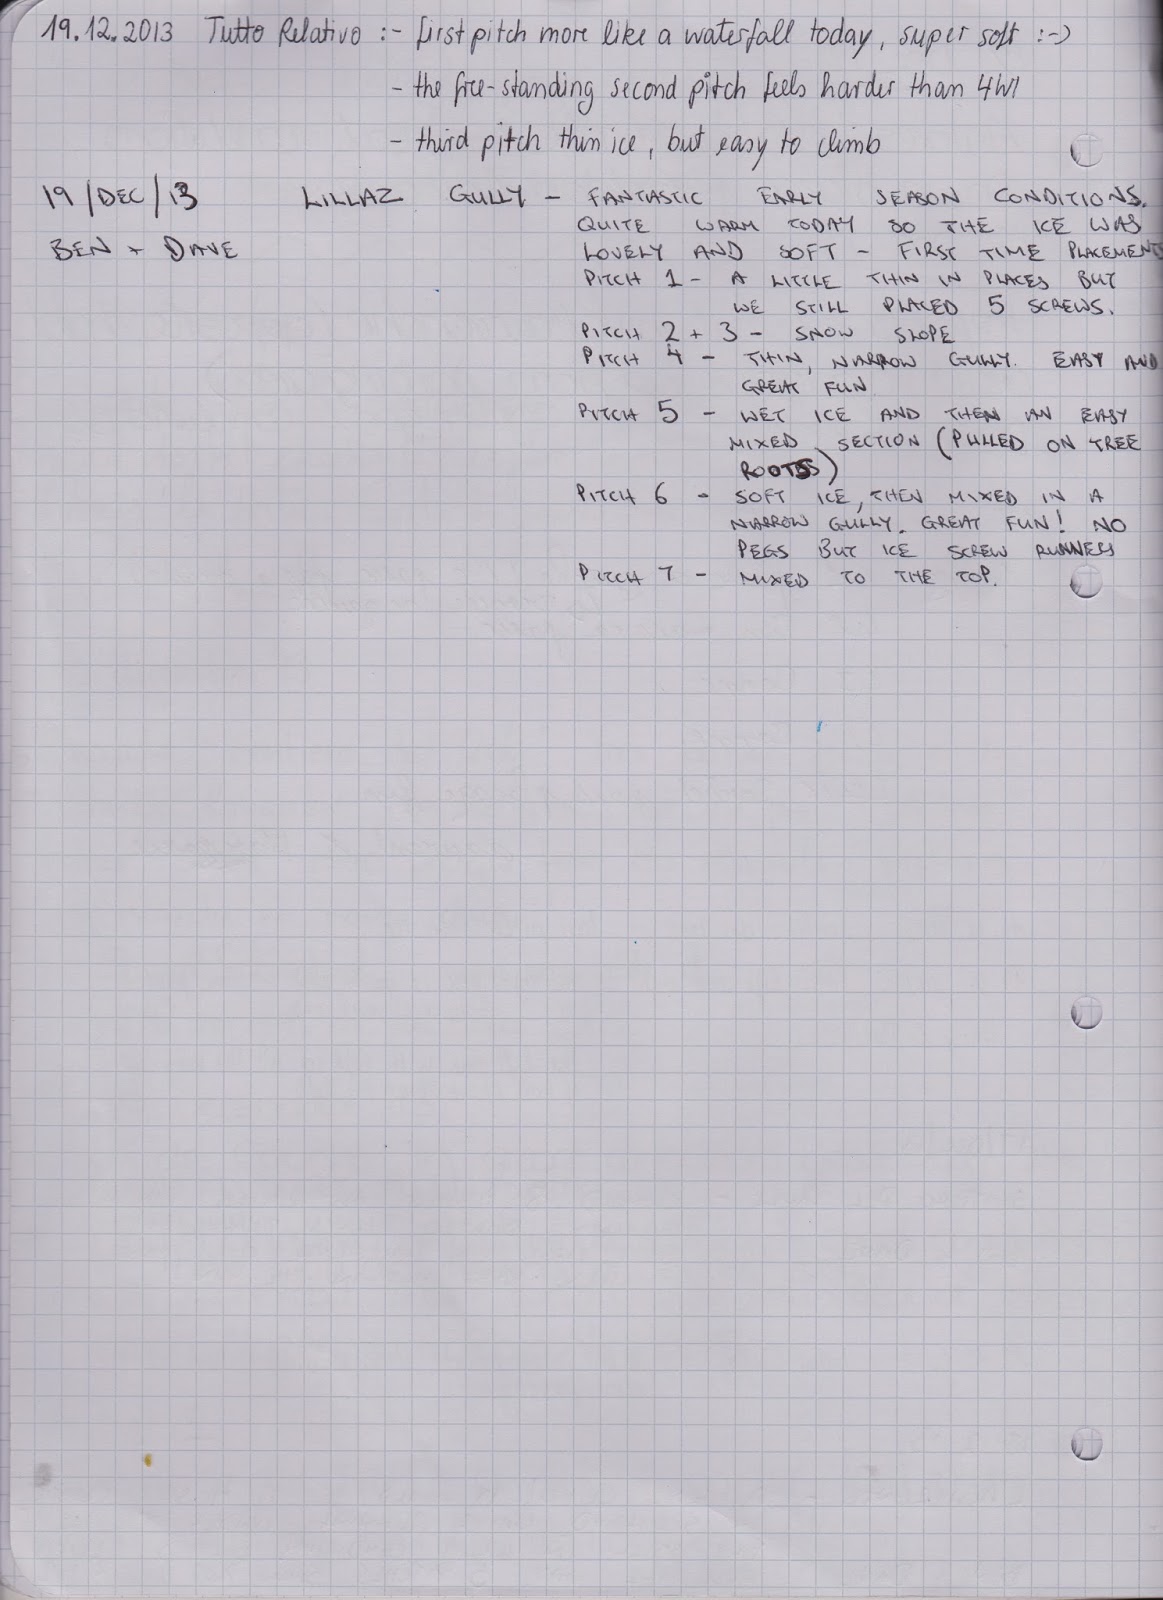 19.12.2013 Tutto Relativo :- first pitch more like a waterfall today, super soft :-)
- the free-standing second pitch feels harder than 4WI
- third pitch thin ice, but easy to climb
19/DEC/13 LILLAZ GULLY - FANTASTIC EARLY SEASON CONDITIONS.
QUITE WARM TODAY SO THE ICE WAS
BEN + DAVE LOVELY AND SOFT - FIRST TIME PLACEMENTS
PITCH 1 - A LITTLE THIN IN PLACES BUT
WE STILL PLACED 5 SCREWS.
PITCH 2 + 3 - SNOW SLOPE
PITCH 4 - THIN, NARROW GULLY. EASY AND
GREAT FUN
PITCH 5 - WET ICE AND THEN AN EASY
MIXED SECTION (PULLED ON TREE
ROOTS)
PITCH 6 - SOFT ICE, THEN MIXED IN A
NARROW GULLY. GREAT FUN! NO
PEGS BUT ICE SCREW RUNNERS
PITCH 7 - MIXED TO THE TOP.